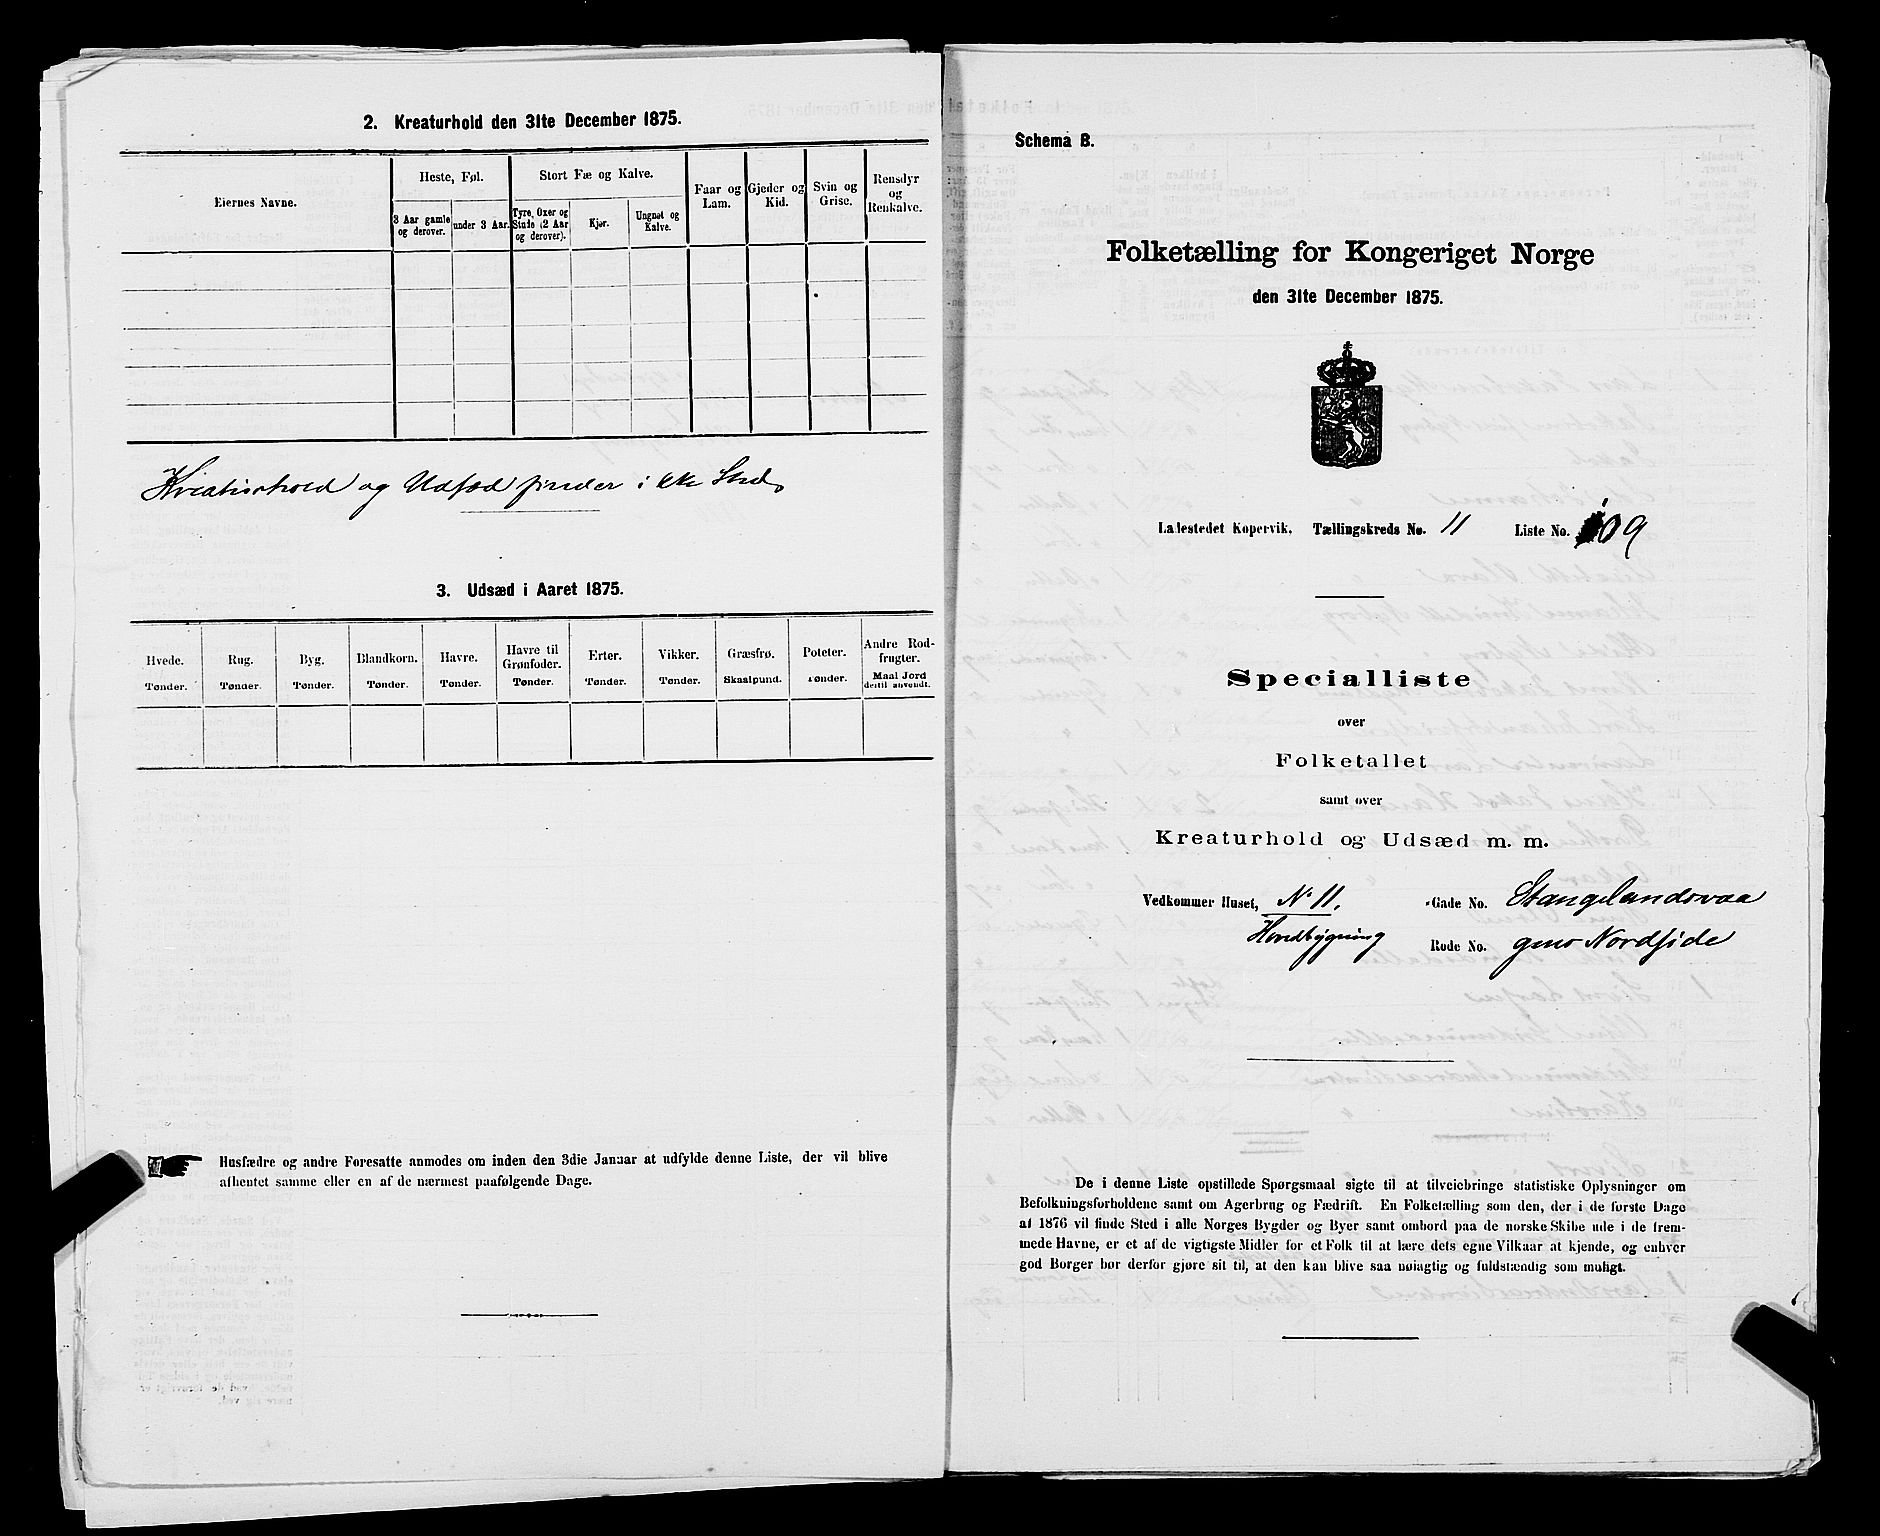 2. Kreaturhold den 31te December 1875.
Eiernes Navne.
Heste, Føl.
3 Aar gamle og derover.
under 3 Aar.
Stort Fæ og Kalve.
Tyre, Oxer og Stude (2 Aar og derover).
Kjør.
Ungnøt og Kalve.
Faar og Lam.
Gjeder og Kid.
Svin og Grise.
Rensdyr og Renkalve.
Kreaturhold og Udsæd finder ikke Sted
3. Udsæd i Aaret 1875.
Hvede. Tønder.
Rug. Tønder.
Byg. Tønder.
Blandkorn. Tønder.
Havre. Tønder.
Havre til Grønfoder. Tønder.
Erter. Tønder.
Vikker. Tønder.
Græsfrø. Skaalpund.
Poteter. Tønder.
Andre Rodfrugter. Maal Jord dertil anvendt.
Husfædre og andre Foresatte anmodes om inden den 3die Januar at udfylde denne Liste, der vil blive
afhentet samme eller en af de nærmest paafølgende Dage.
Schema B.
Folketælling for Kongeriget Norge
den 31te December 1875.
Ladestedet Kopervik. Tællingskreds No. 11 Liste No. 109
Specialliste
over
Folketallet
samt over
Kreaturhold og Udsæd m. m.
Vedkommer Huset, No 11. Gade No. Stangelandsvaa
Rode No. Nordside
De i denne Liste opstillede Spørgsmaal sigte til at tilveiebringe statistiske Oplysninger om
Befolkningsforholdene samt om Agerbrug og Fædrift. En Folketælling som den, der i de første Dage
af 1876 vil finde Sted i alle Norges Bygder og Byer samt ombord paa de norske Skibe ude i de frem-
mede Havne, er et af de vigtigste Midler for et Folk til at lære dets egne Vilkaar at kjende, og enhver
god Borger bør derfor gjøre sit til, at den kan blive saa nøiagtig og fuldstændig som muligt.